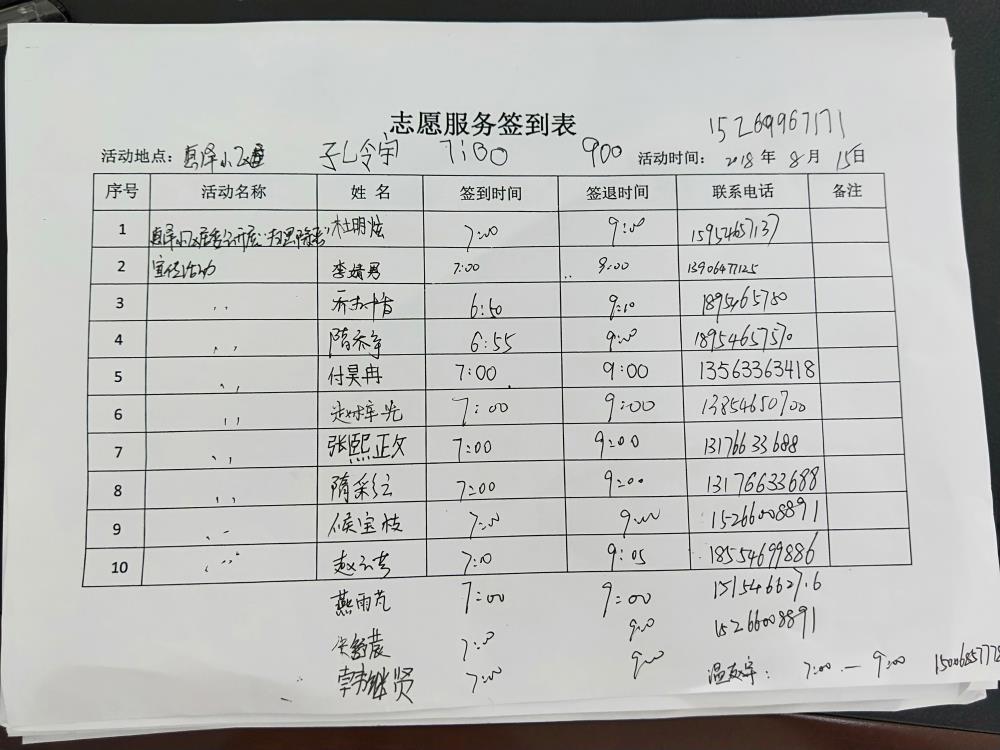 志愿服务签到表 15269967171
活动地点: 惠泽小区 孔令宇 7:00 900 活动时间: 2018 年 8 月 15 日
序号 活动名称 姓 名 签到时间 签退时间 联系电话 备注
1 惠泽小区居委会开展"扫黑除恶" 杜明炫 7:00 9:00 15954657137
2 宣传活动 李婧男 7:00 9:00 13906477125
3 〃 6:50 9:10 1895465780
4 〃 隋乔宇 6:55 9:00 18954657570
5 〃 付昊冉 7:00 9:00 13563363418
6 〃 7:00 9:00 13854650700
7 〃 张熙正文 7:00 9:00 13176633688
8 〃 隋彩红 7:00 9:00 13176633688
9 〃 候宝枝 7:00 9:00 15266008891
10 〃 7:00 9:05 18554699886
燕雨芃 7:00 9:00 1515466276
7:00 900 15266008891
韩继贤 7:00 900 7:00 — 9:00